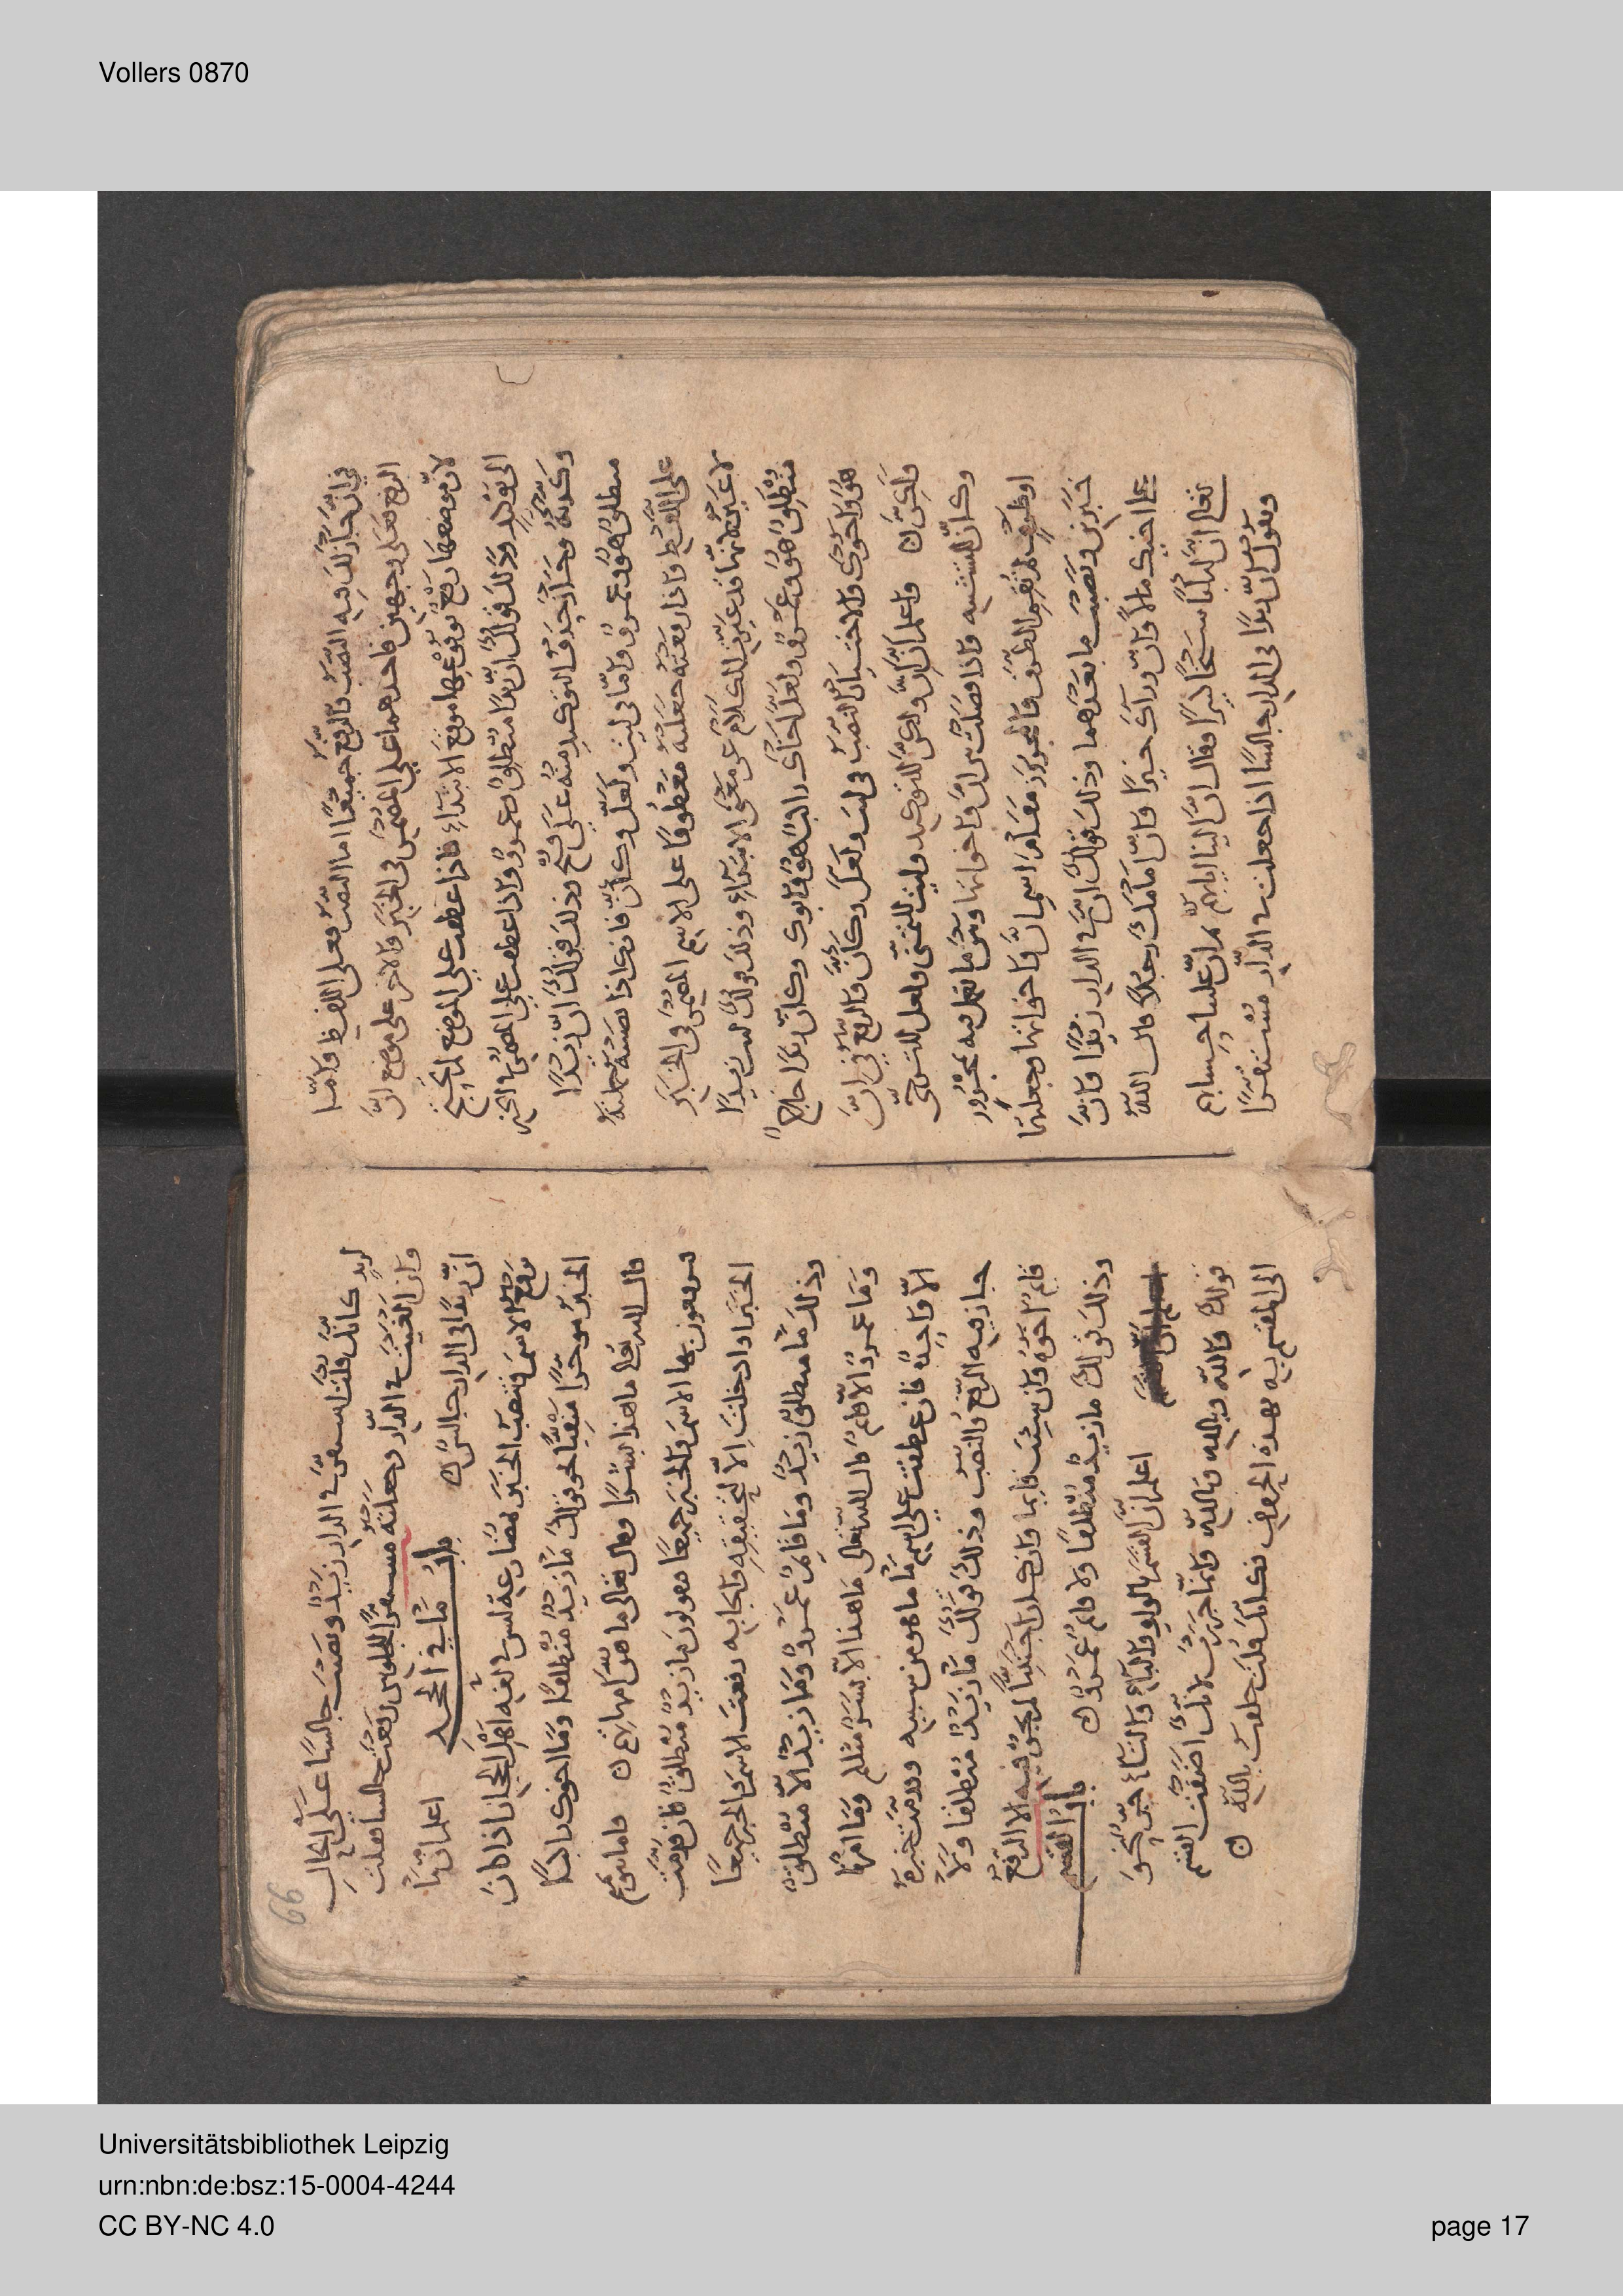 Vollers 0870
في ان جاز لك فيه النصب والرفع جميعا اما النصب فعلى اللفظ واما
الرفع فعلى وجهين فاحدهما على المضمر في الخبر والاخر على موضع ان
لان موضعها رفع لوقوعها موقع الابتداء فاذا عطفت على الموضع لم يحتج
الى توكيد وذلك قولك ان زيدا منطلق وعمرو واذا عطفت على المضمر في الخبر
وكدته ويجوز حذف التوكيد منه على قبح وذلك قولك ان زيدا
منطلق هو وعمرو واما في ليت ولعل وكأن فانك اذا نصبته حملته
على اللفظ واذا رفعته جعلته معطوفا على الاسم المضمر في الخبر
لا غير لانها قد غيرت الكلام عن معنى الابتداء وذلك قولك ليت زيدا
منطلق هو وعمرو ولعل اخاك راكب هو وابوك وكأن بكرا خارج
هو واخوك والاختيار النصب في ليت ولعل وكأن والرفع في ان
ولكن واعلم ان ان ولكن للتوكيد وليت للتمني ولعل للترجي
وكأن للتشبيه واذا فصلت بين ان واخواتها وبين ما تعمل فيه بمجرور
او ظرف الظرف والمجرور مقام اسم ان واخواتها وجعلتهما
خبرين ونصبت ما بعدهما وذلك قولك ان في الدار زيدا وان
عند اخيك مالا وان وراءك خيرا وان امامك رجلا قال الله
تعالى ان وقال ان الينا ايابهم ثم ان علينا حسابهم
وتقول ان زيدا في الدار جالسا اذا جعلت في الدار مستقرا
66
لزيد كانك قلت استقر في الدار زيد ونصبت جالسا على الحال
وان الغيت في الدار وجعلته مستقرا للجلوس رفعت جالسا فقلت
ان زيدا في الدار جالس باب ما في الجحد اعلم ان ما
ترفع الاسم وتنصب الخبر مضارعة ليس في لغة اهل الحجاز اذا كان
الخبر موخرا منفيا نحو قولك ما زيد منطلقا وما اخوك راكبا
قال الله تعالى ما هذا بشرا وقال تعالى ما هن امهاتهم واما بنو تميم
فيرفعون بها الاسم والخبر جميعا فيقولون ما زيد منطلق فان قدمت
الخبر او ادخلت الا لتحقيقه وايجابه رفعت الاسم والخبر جميعا
وذلك ما منطلق زيد وما قايم عمرو وما زيد الا منطلق
وما عمرو الا قايم قال الله تعالى ما هذا الا بشر مثلكم وما امرنا
الا واحدة فان عطفت على اسم ما ما هو من سببه وقدمت خبره
جاز فيه الرفع والنصب وذلك قولك ما زيد منطلقا ولا
قايم اخوه وان شئت قايما وان كان اجنبيا لم يجز فيه الا الرفع
وذلك قولك ما زيد منطلقا ولا قايم عمرو باب القسم
اعلم ان القسم بالواو والباء والتاء يجر نحو
قولك والله وبالله وتالله وانما جررت لانك اضفت القسم
الى المقسم به بهذه الحروف فكانك قلت حلفت بالله
Universitätsbibliothek Leipzig
urn:nbn:de:bsz:15-0004-4244
CC BY-NC 4.0
page 17